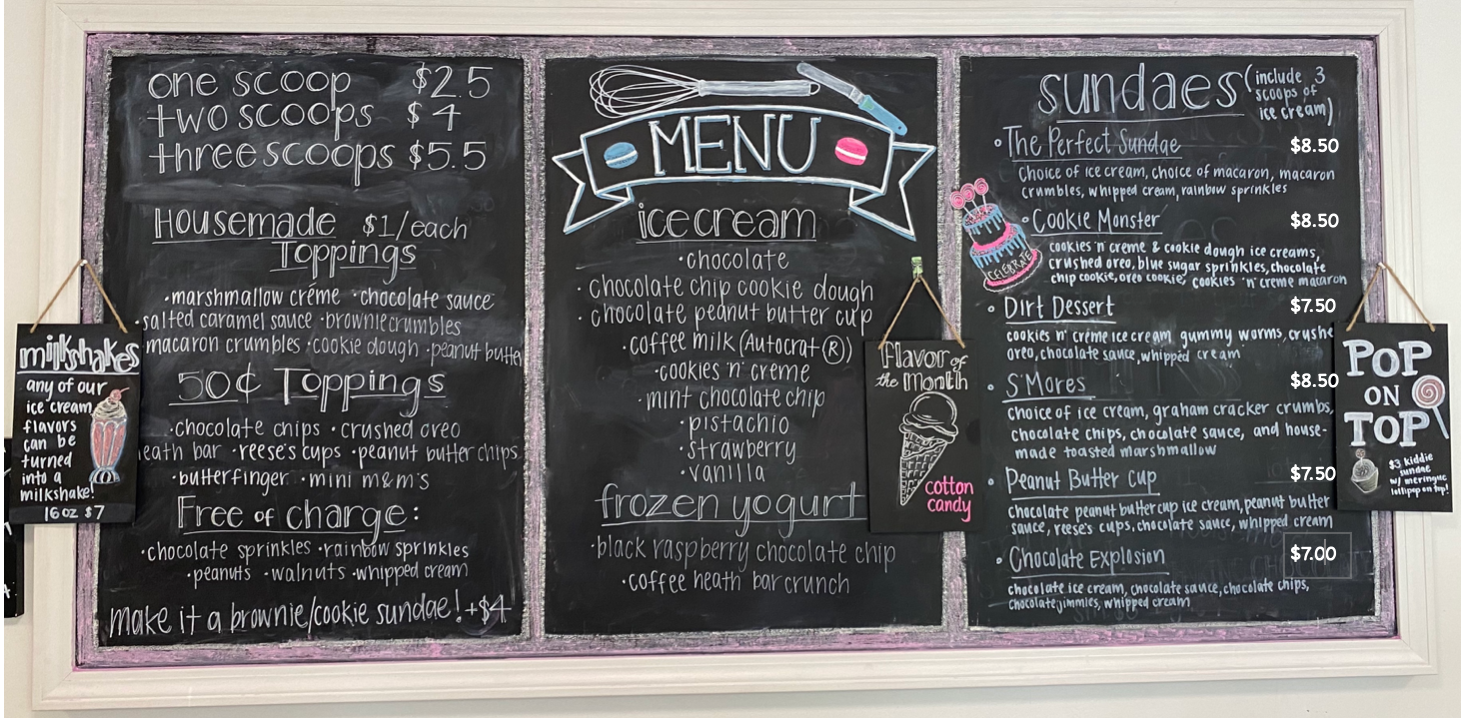 one scoop $2.5
two scoops $4
three scoops $5.5
Housemade $1/each
Toppings
·marshmallow créme ·chocolate sauce
·salted caramel sauce ·brownie crumbles
·macaron crumbles ·cookie dough ·peanut butte
50¢ Toppings
·chocolate chips ·crushed oreo
eath bar ·reese's cups ·peanut butter chips
·butterfinger ·mini m&m's
Free of charge:
·chocolate sprinkles ·rainbow sprinkles
·peanuts ·walnuts ·whipped cream
make it a brownie/cookie sundae! +$4
milkshakes
any of our
ice cream
flavors
can be
turned
into a
milkshake!
16oz $7
MENU
ice cream
·chocolate
·chocolate chip cookie dough
·chocolate peanut butter cup
·coffee milk (Autocrat®)
·cookies 'n' creme
·mint chocolate chip
·pistachio
·strawberry
·vanilla
frozen yogurt
·black raspberry chocolate chip
·coffee heath bar crunch
Flavor of
the Month
cotton
candy
sundaes (include 3
scoops of
ice cream)
·The Perfect Sundae $8.50
Choice of ice cream, choice of macaron, macaron
crumbles, whipped cream, rainbow sprinkles
·Cookie Monster $8.50
cookies 'n' creme & cookie dough ice creams,
crushed oreo, blue sugar sprinkles, chocolate
chip cookie, oreo cookie, cookies 'n' creme macaron
CELEBRATE
·Dirt Dessert $7.50
cookies n' creme ice cream, gummy worms, crushe
oreo, chocolate sauce, whipped cream
·S'Mores $8.50
choice of ice cream, graham cracker crumbs,
chocolate chips, chocolate sauce, and house-
made toasted marshmallow
·Peanut Butter Cup $7.50
chocolate peanut butter cup ice cream, peanut butter
sauce, reese's cups, chocolate sauce, whipped cream
·Chocolate Explosion $7.00
chocolate ice cream, chocolate sauce, chocolate chips,
chocolate jimmies, whipped cream
POP
ON
TOP
$3 kiddie
sundae
w/ meringue
lollipop on top!